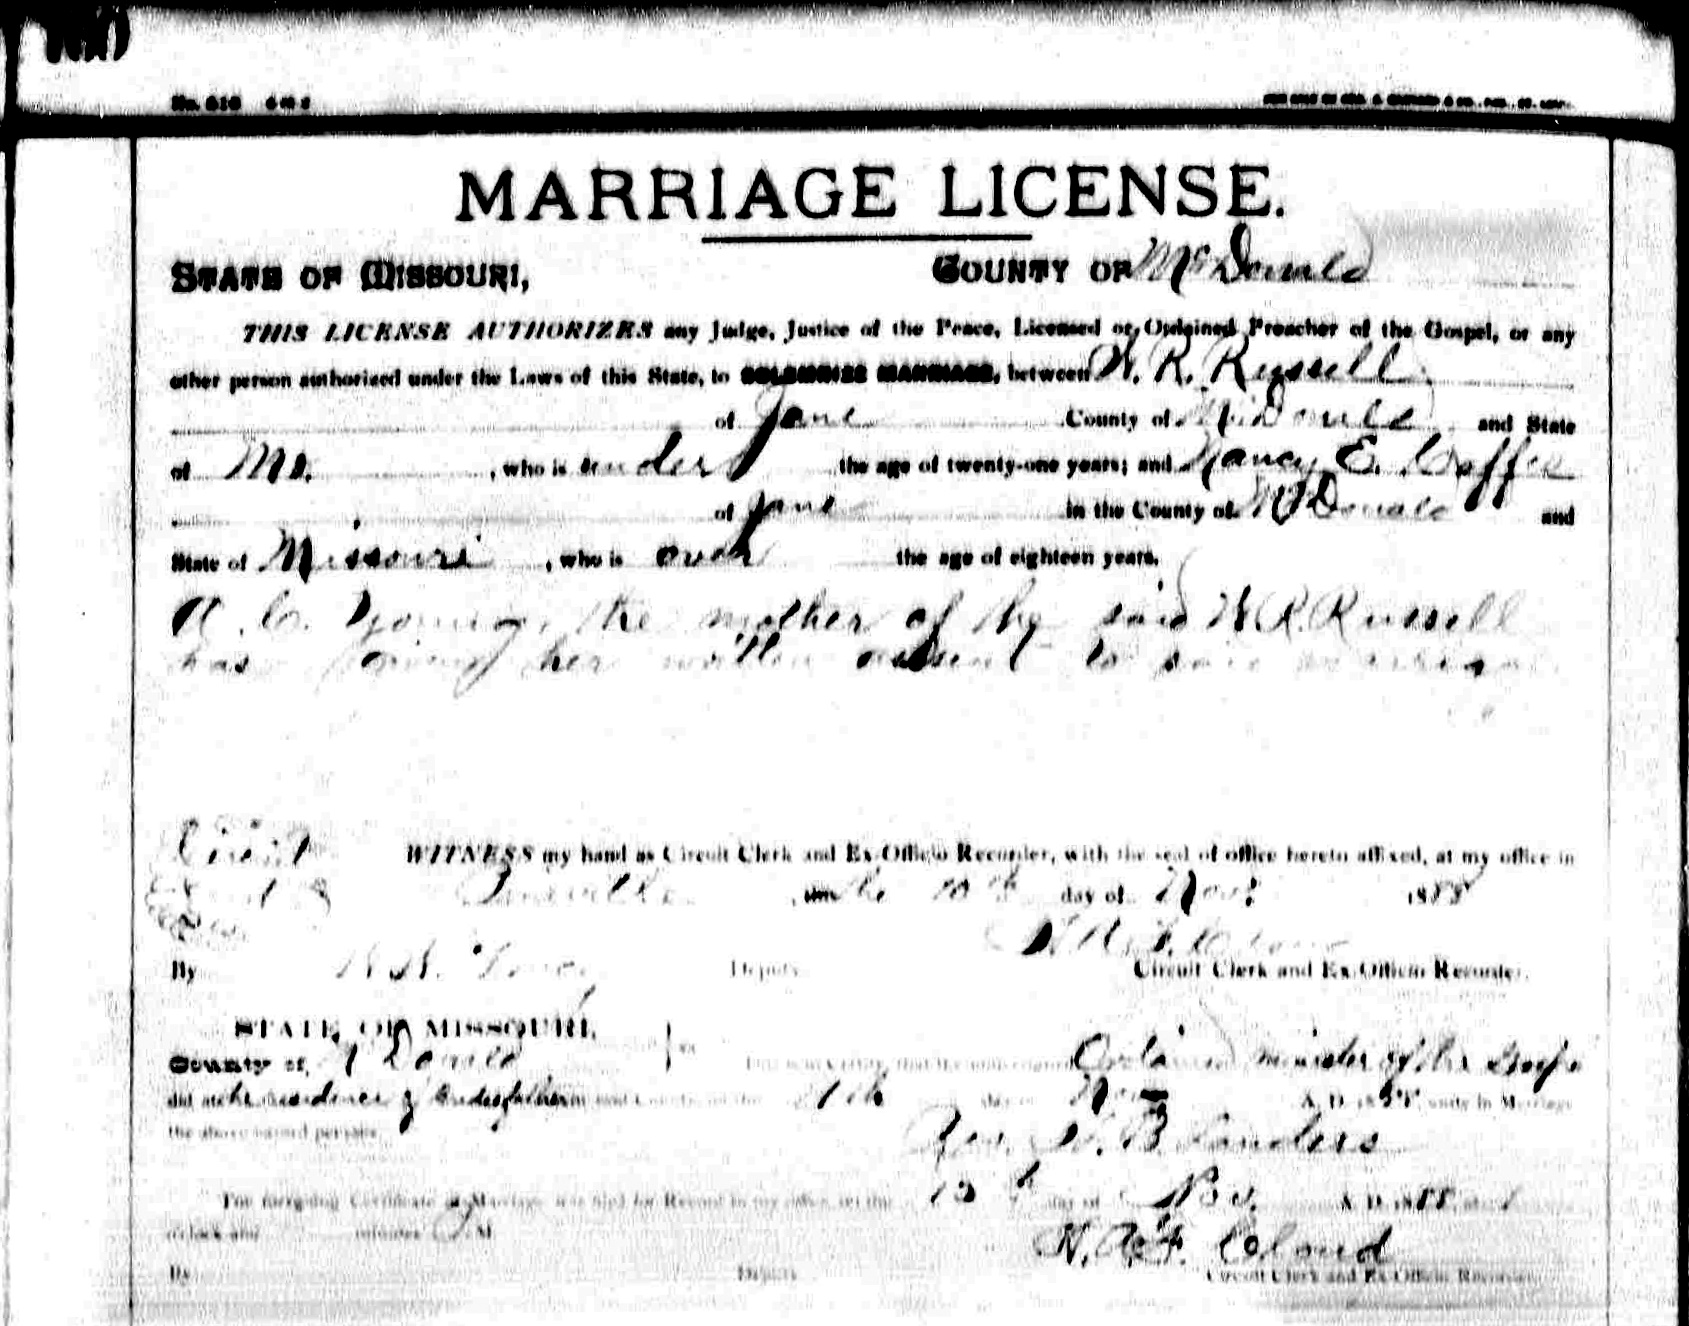 MARRIAGE LICENSE.
STATE OF MISSOURI, COUNTY OF McDonald
THIS LICENSE AUTHORIZES any Judge, Justice of the Peace, Licensed or Ordained Preacher of the Gospel, or any
other person authorized under the Laws of this State, to SOLEMNIZE MARRIAGE, between W. R. Russell
of Jane County of McDonald and State
of Mo. , who is under the age of twenty-one years; and Nancy E. Coffee
of Jane in the County of McDonald and
State of Missouri , who is over the age of eighteen years.
A. C. Young, the mother of the said W R. Russell
has given her written assent to said marriage
Circuit WITNESS my hand as Circuit Clerk and Ex-Officio Recorder, with the seal of office hereto affixed, at my office in
Pineville the 10th day of Nov. 1888
Circuit Clerk and Ex-Officio Recorder.
By Deputy
STATE OF MISSOURI,
County of McDonald ss This is to certify, that the undersigned Ordained minister of the Gospel
did at the residence of brides father in said County, on the 11th day of Nov A. D. 1888, unite in Marriage
the above named persons.
Rev. W. B. Sanders
The foregoing Certificate of Marriage was filed for Record in my office on the day of A. D. 1888, at
o'clock and minutes M.
N. A. F. Cloud
By Deputy Circuit Clerk and Ex-Officio Recorder.